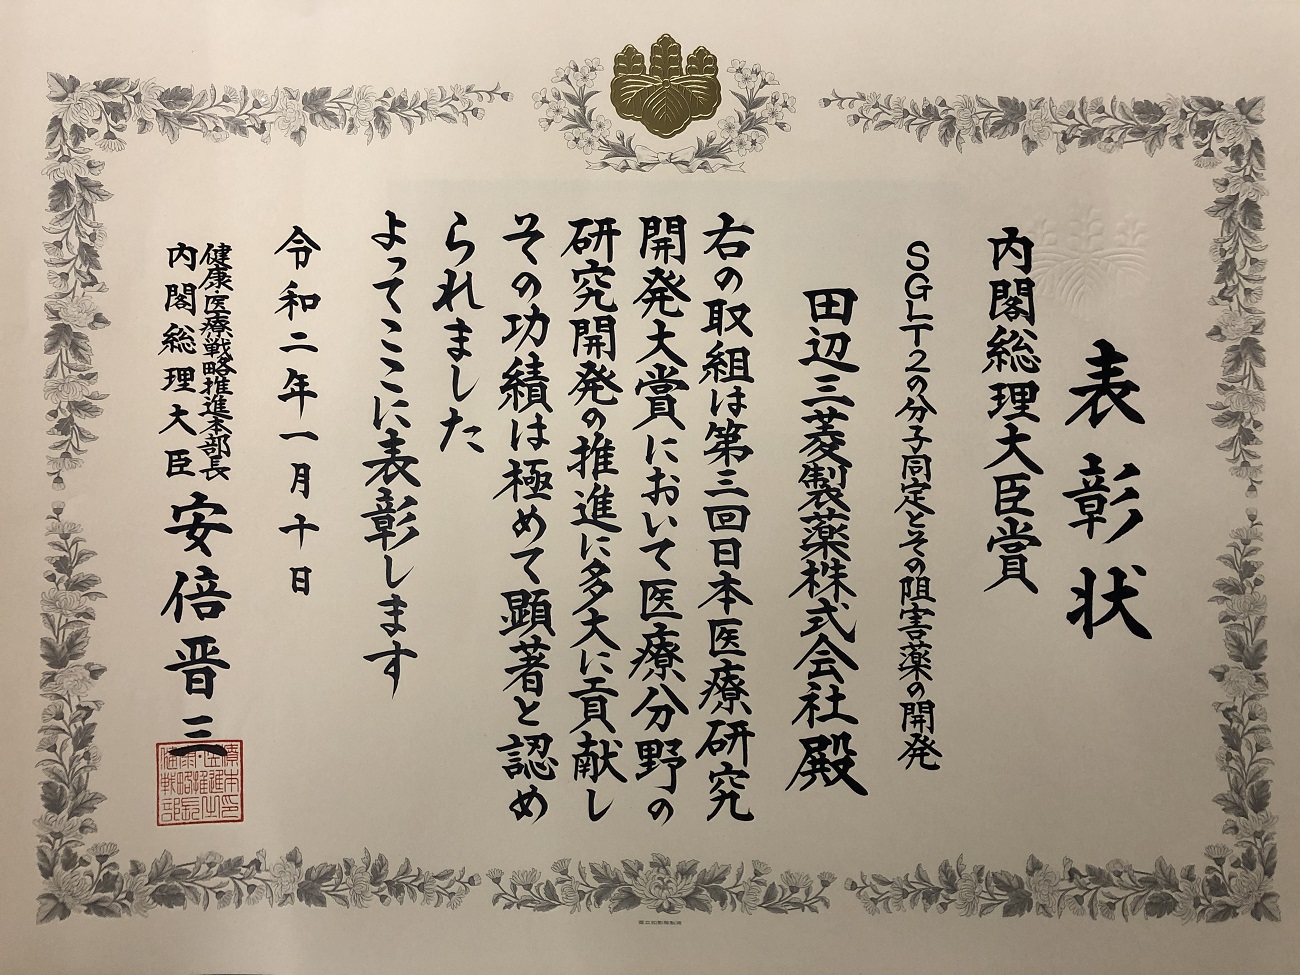 表彰状
内閣総理大臣賞
SGLT2の分子同定とその阻害薬の開発
田辺三菱製薬株式会社殿
右の取組は第三回日本医療研究
開発大賞において医療分野の
研究開発の推進に多大に貢献し
その功績は極めて顕著と認め
られました
よってここに表彰します
令和二年一月十日
健康・医療戦略推進本部長
内閣総理大臣 安倍晋三